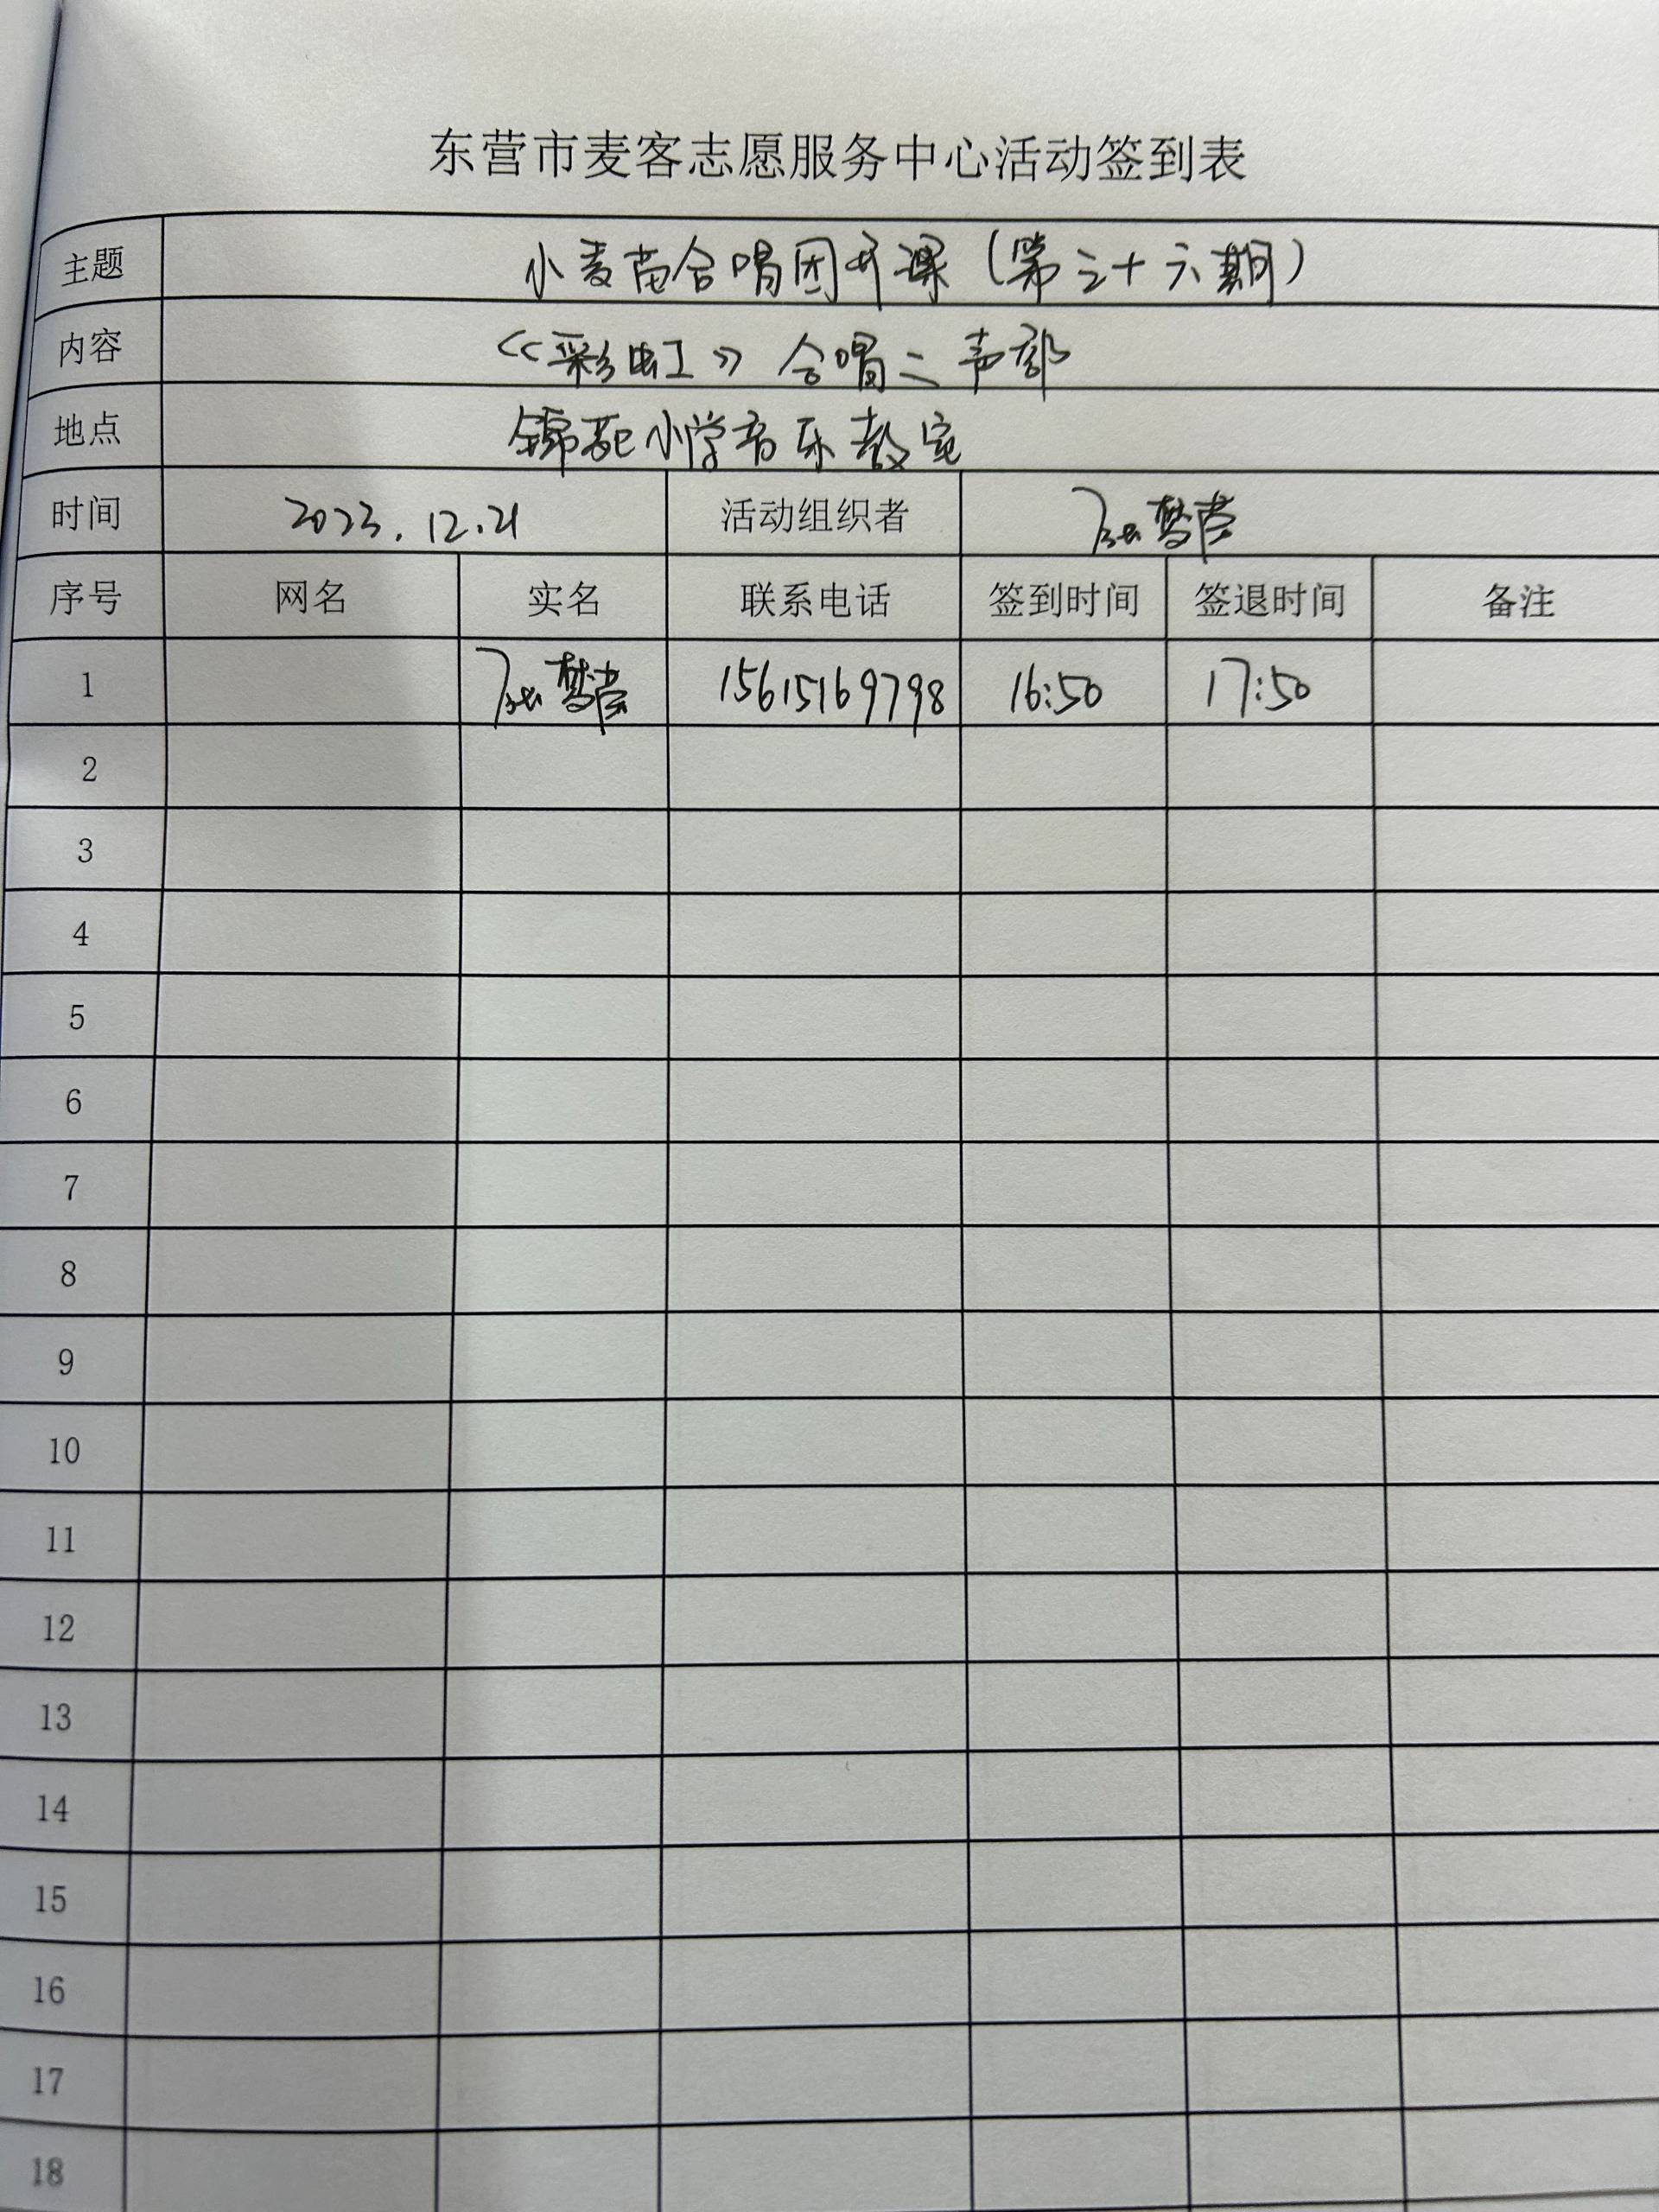 东营市麦客志愿服务中心活动签到表
主题 小麦苗合唱团开课（第三十六期）
内容 《彩虹》合唱二声部
地点 锦苑小学音乐教室
时间 2023.12.21 活动组织者
序号 网名 实名 联系电话 签到时间 签退时间 备注
1 15615169798 16:50 17:50
2
3
4
5
6
7
8
9
10
11
12
13
14
15
16
17
18